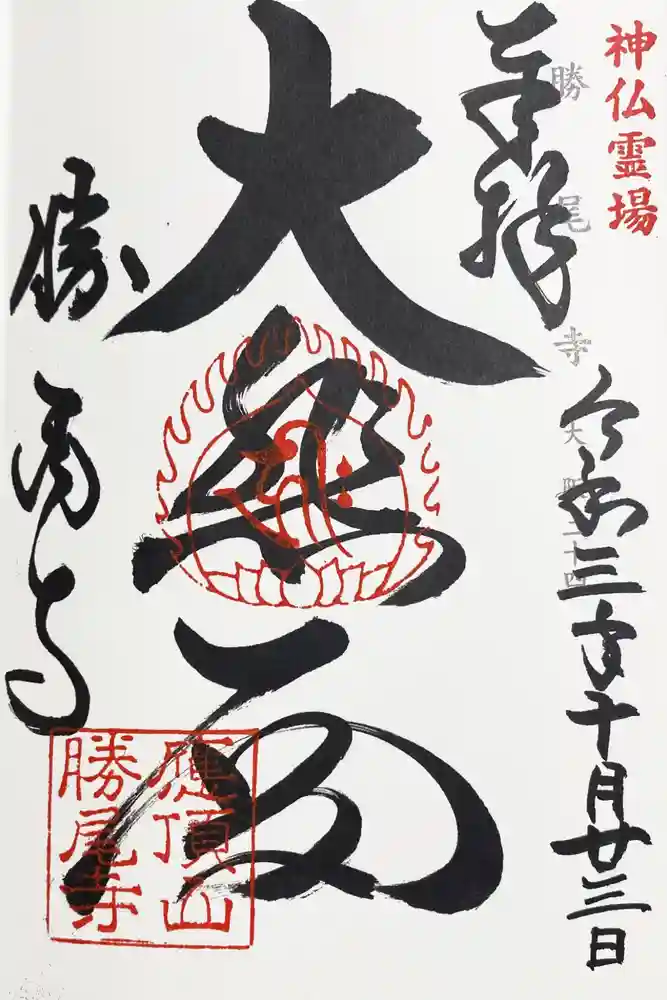 神仏霊場
勝尾寺
大阪二十四
奉拝
令和三年十月廿三日
大悲殿
勝尾寺
應頂山
勝尾寺